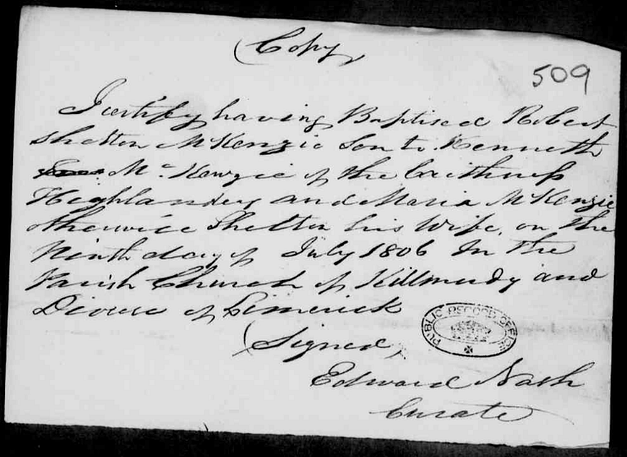 (Copy)
509
I certify having Baptised Robert
Shelton McKenzie Son to Kenneth
McKenzie of the Caithness
Highlanders and Maria McKenzie
otherwise Shelton his Wife, on the
Ninth day of July 1806 In the
Parish Church of Killmedy and
Diocese of Limerick
(Signed)
PUBLIC RECORD OFFICE
Edward Nash
Curate